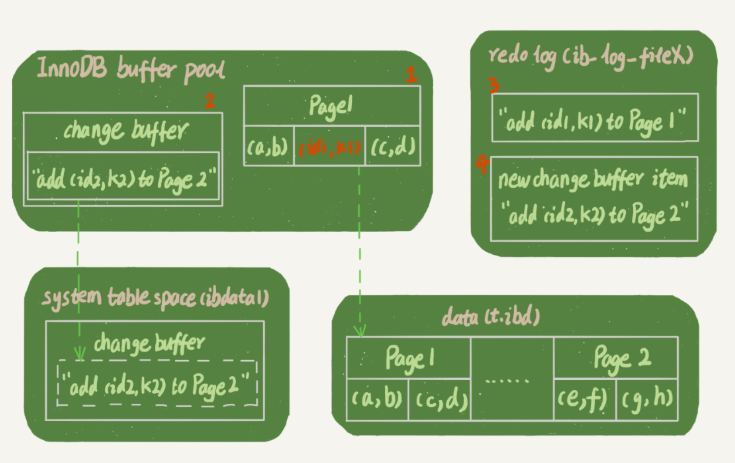 InnoDB buffer pool
1
2
Page1
(a,b) (id1,k1) (c,d)
change buffer
"add (id2,k2) to Page 2"
redo log (ib_log_fileX)
3
"add (id1,k1) to Page 1"
4
new change buffer item
"add (id2,k2) to Page 2"
system table space (ibdata1)
change buffer
"add (id2,k2) to Page 2"
data (t.ibd)
Page 1 ...... Page 2
(a,b) (c,d) (e,f) (g,h)